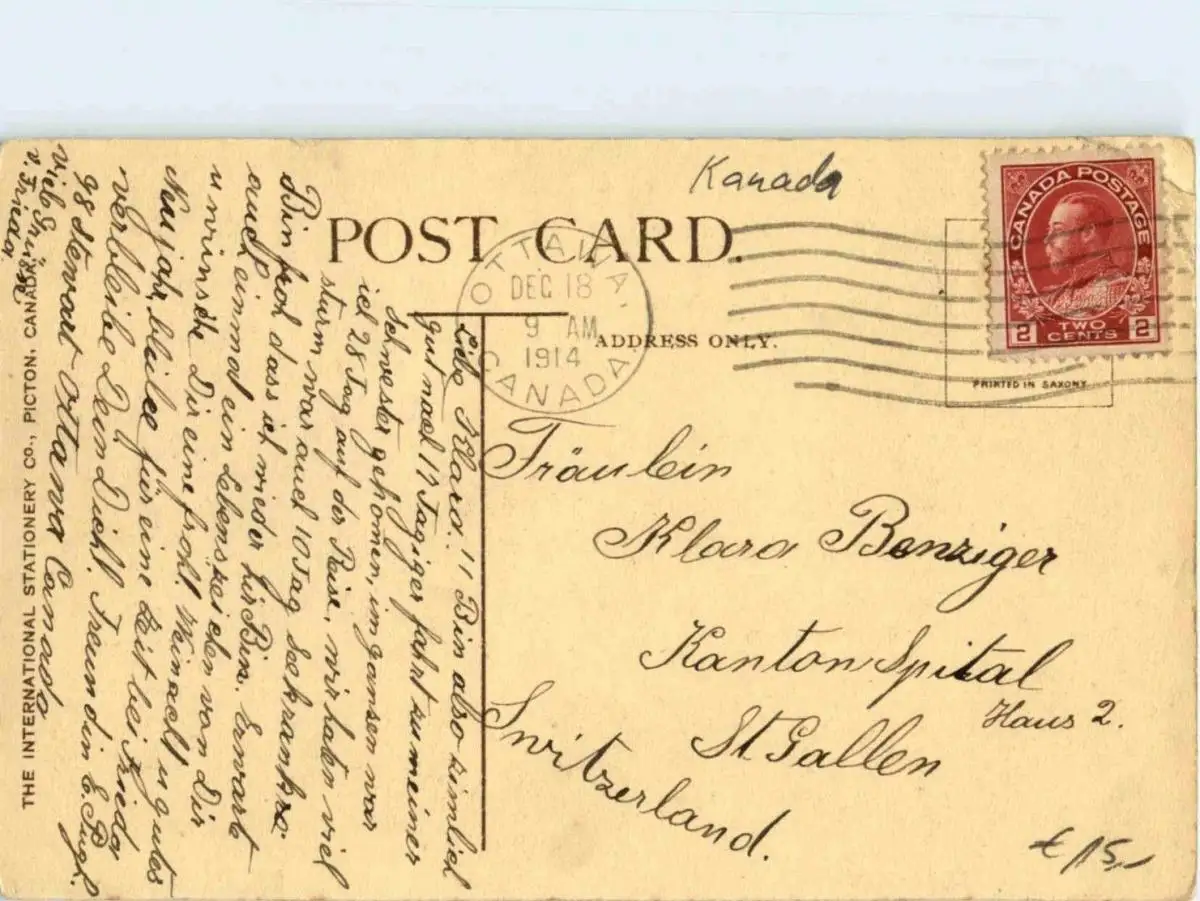 Kanada
POST CARD.
OTTAWA.
DEC 18
9 AM
1914
CANADA.
ADDRESS ONLY.
CANADA POSTAGE
2 TWO CENTS 2
PRINTED IN SAXONY
Fräulein
Klara Benziger
Kanton Spital
Haus 2.
St Gallen
Switzerland.
€ 15,-
Liebe Klara! Bin also zimlich
gut nach 17 Tagiger fahrt zu meiner
Schwester gekomen, im gansen war
ich 28 Tag auf der Reise, wir haten viel
sturm war auch 10 Tag Seekrank
Bin froh dass ich wieder hir Bin. Erwarte
auch einmal ein Lebenszeichen von Dir
u wünsche Dir eine frohl. Weinacht u gutes
Neujahr, bleibe für eine Zeit bei Frieda
verbleibe Dein Dichl. Freundin E.
98 Stewart Ottawa Canada
viele Grüsse
v. Frieda
THE INTERNATIONAL STATIONERY CO., PICTON, CANADA.